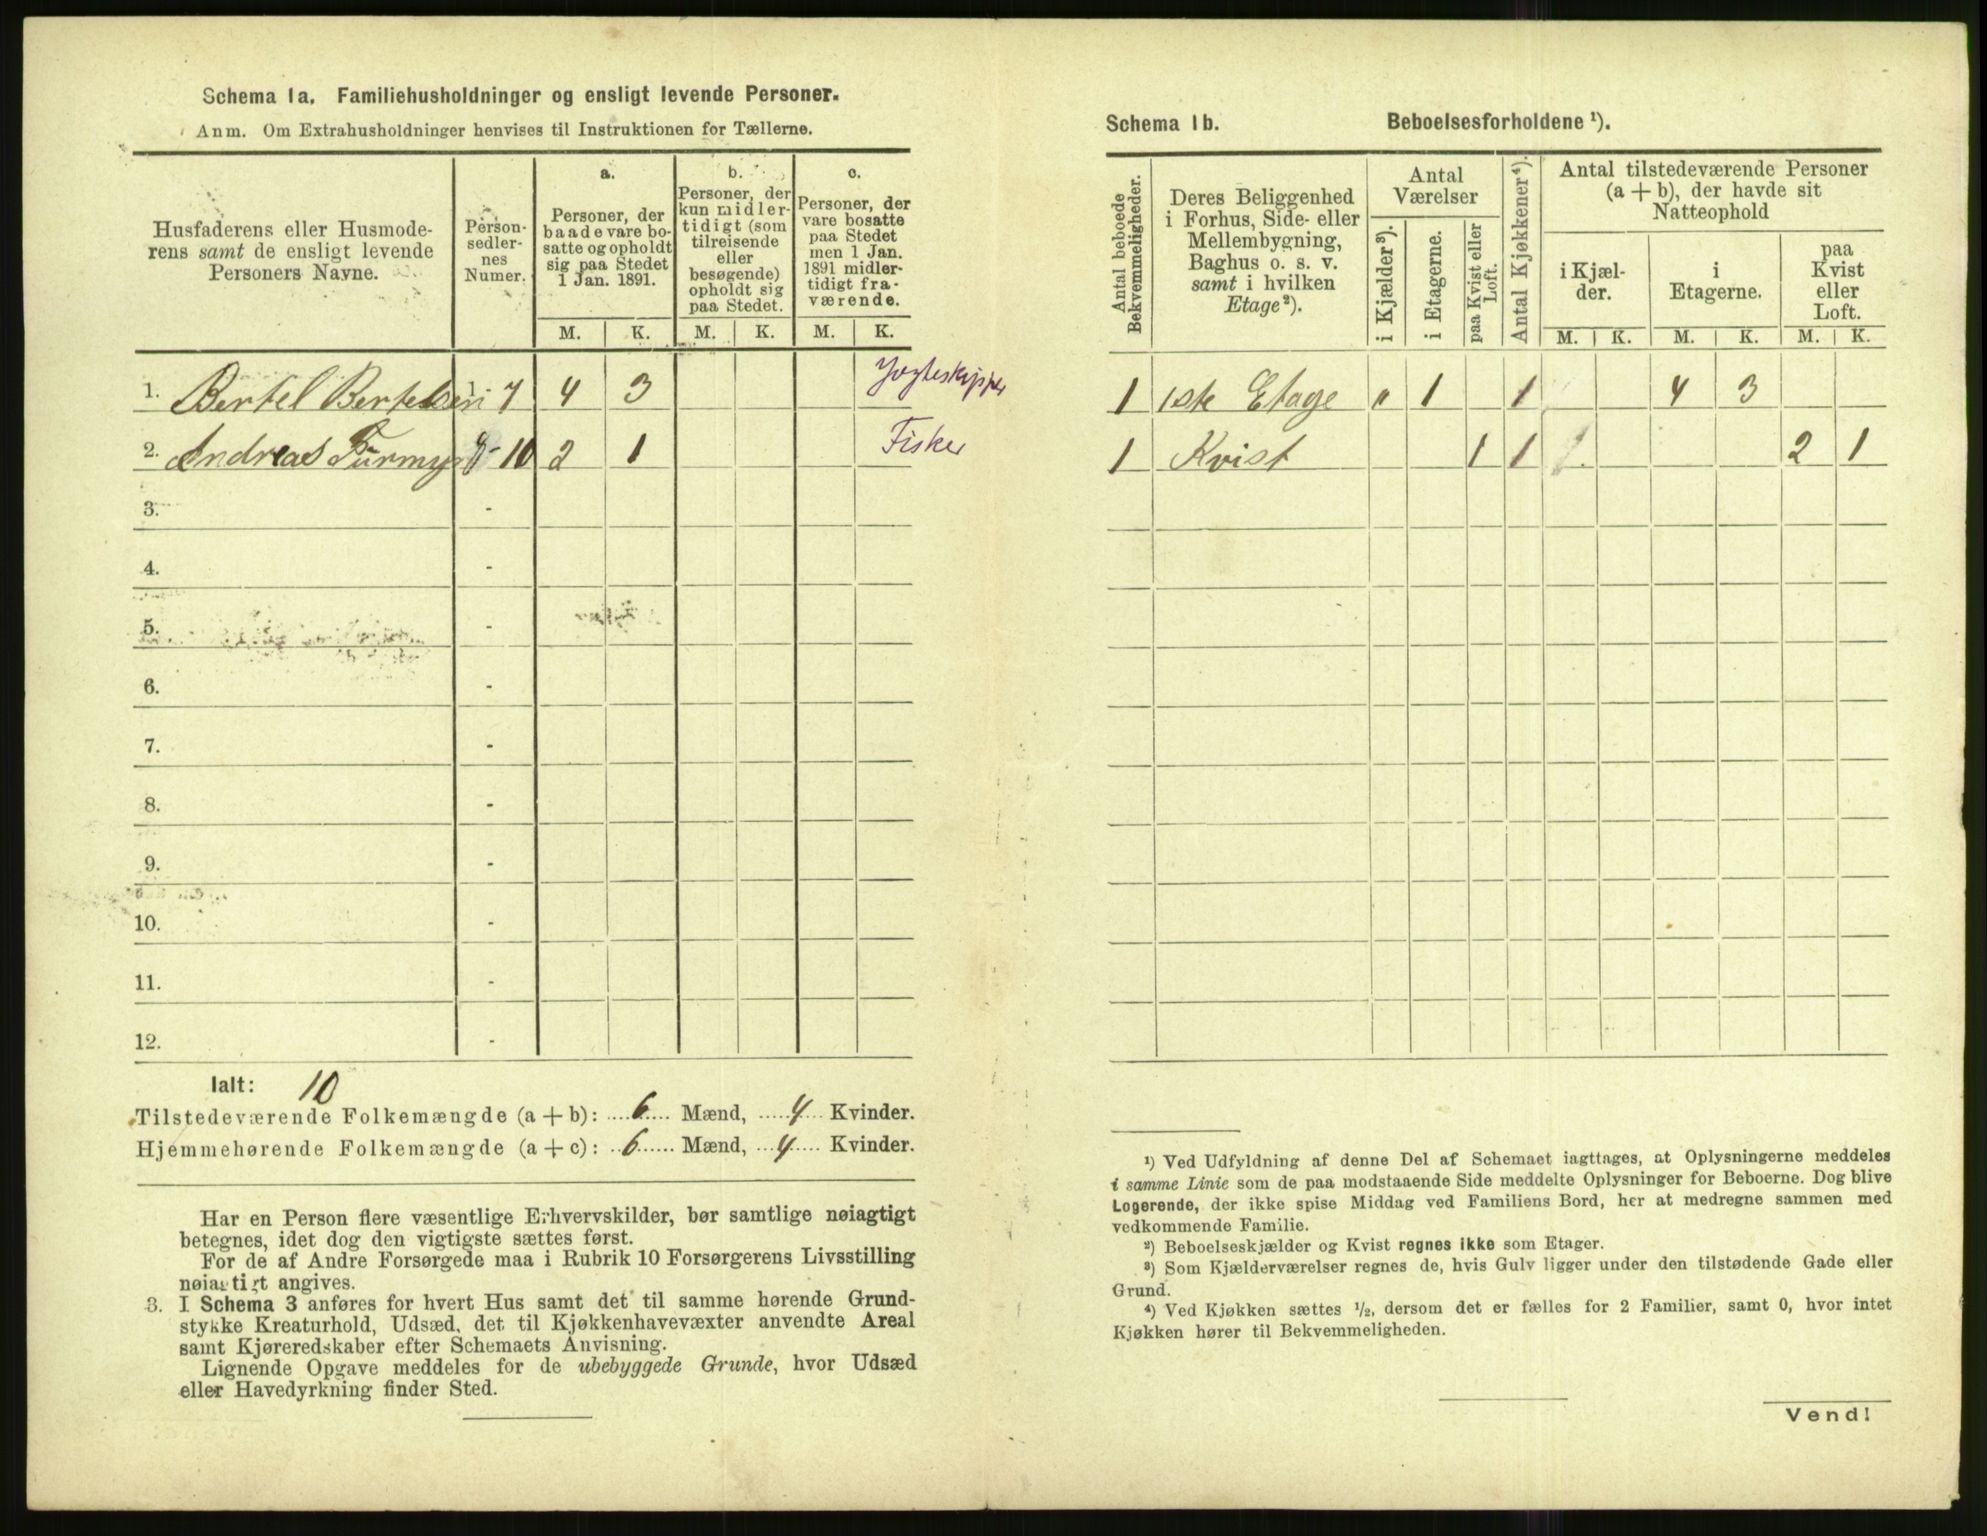 Schema 1a. Familiehusholdninger og ensligt levende Personer.
Anm. Om Extrahusholdninger henvises til Instruktionen for Tællerne.
Husfaderens eller Husmoderens samt de ensligt levende Personers Navne.
Person-sedlernes Numer.
a.
Personer, der baade vare bosatte og opholdt sig paa Stedet 1 Jan. 1891.
b.
Personer, der kun midlertidigt (som tilreisende eller besøgende) opholdt sig paa Stedet.
c.
Personer, der vare bosatte paa Stedet men 1 Jan. 1891 midlertidigt fraværende.
M. K. M. K. M. K.
1. Bertel Bertelsen 1-7 4 3 Jagteskipper
2. Andreas 8-10 2 1 Fisker
3. -
4. -
5. -
6. -
7. -
8. -
9. -
10. -
11. -
12. -
Ialt: 10
Tilstedeværende Folkemængde (a + b): 6 Mænd, 4 Kvinder.
Hjemmehørende Folkemængde (a + c): 6 Mænd, 4 Kvinder.
Har en Person flere væsentlige Erhvervskilder, bør samtlige nøiagtigt
betegnes, idet dog den vigtigste sættes først.
For de af Andre Forsørgede maa i Rubrik 10 Forsørgerens Livsstilling
nøiagtigt angives.
3. I Schema 3 anføres for hvert Hus samt det til samme hørende Grund-
stykke Kreaturhold, Udsæd, det til Kjøkkenhavevæxter anvendte Areal
samt Kjøreredskaber efter Schemaets Anvisning.
Lignende Opgave meddeles for de ubebyggede Grunde, hvor Udsæd
eller Havedyrkning finder Sted.
Schema 1b. Beboelsesforholdene ¹).
Antal beboede Bekvemmeligheder.
Deres Beliggenhed i Forhus, Side- eller Mellembygning, Baghus o. s. v. samt i hvilken Etage²).
Antal Værelser
i Kjælder³).
i Etagerne.
paa Kvist eller Loft.
Antal Kjøkkener⁴).
Antal tilstedeværende Personer (a + b), der havde sit Natteophold
i Kjælder.
i Etagerne.
paa Kvist eller Loft.
M. K. M. K. M. K.
1 1ste Etage " 1 1 4 3
1 Kvist 1 1 2 1
¹) Ved Udfyldning af denne Del af Schemaet iagttages, at Oplysningerne meddeles
i samme Linie som de paa modstaaende Side meddelte Oplysninger for Beboerne. Dog blive
Logerende, der ikke spise Middag ved Familiens Bord, her at medregne sammen med
vedkommende Familie.
²) Beboelseskjælder og Kvist regnes ikke som Etager.
³) Som Kjælderværelser regnes de, hvis Gulv ligger under den tilstødende Gade eller
Grund.
⁴) Ved Kjøkken sættes ½, dersom det er fælles for 2 Familier, samt 0, hvor intet
Kjøkken hører til Bekvemmeligheden.
Vend!